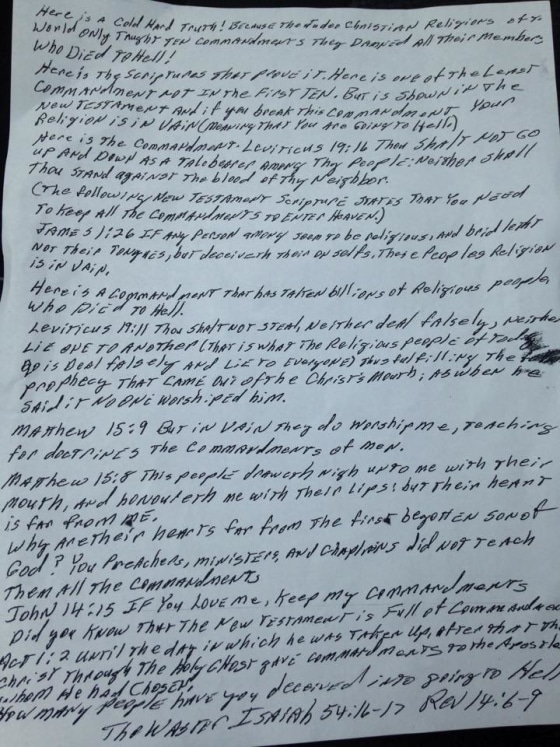 Here is A Cold Hard Truth! Because The Judeo Christian Religions of
World Only Taught TEN Commandments They Damned All Their Members
Who Died To Hell!
Here is The Scriptures That Prove it. Here is one of the Least
Commandment NOT IN the First TEN. But is Shown in The
New Testament And if you break This Commandment Your
Religion is in VAIN (Meaning That You Are Going to Hell)
Here is The Commandment. Leviticus 19:16 Thou Shalt NOT GO
up And Down As A Talebearer Among Thy People: Neither Shall
Thou Stand against The blood of Thy Neighbor.
(The following New Testament Scripture States That You Need
To Keep All The Commandments To Enter Heaven.)
JAMES 1:26 IF Any Person among seem to be religious, and bridleth
Not Their Tongues, but deceiveth their own selfs, These Peoples Religion
is in VAIN.
Here is A Commandment That has Taken billions of Religious people
Who Died To Hell.
Leviticus 19:11 Thou Shalt Not Steal, Neither deal falsely, Neither
LIE ONE TO Another (That is what The Religious people of Today
Do is Deal falsely And LIE To Everyone) Thus fulfilling The
prophecy That CAME Out of the Christ's Mouth; AS when he
Said it NO ONE Worshiped him.
Matthew 15:9 But in VAIN They do Worship me, Teaching
for doctrines The Commandments of Men.
Matthew 15:8 This people draweth nigh unto me with Their
Mouth, And honoureth me with Their Lips: but Their heart
is far from ME.
Why Are Their hearts far from The first begotten Son of
God? You Preachers, ministers, And Chaplains did NOT Teach
Them All The Commandments
John 14:15 IF You Love me, Keep my Commandments
Did you Know That The New Testament is Full of
Act 1:2 Until The day in which he was Taken Up, after that The
Christ Through The Holy Ghost gave Commandments To The
whom He had Chosen.
How many people have you deceived into going To Hell
The Waster Isaiah 54:16-17 Rev 14:6-9